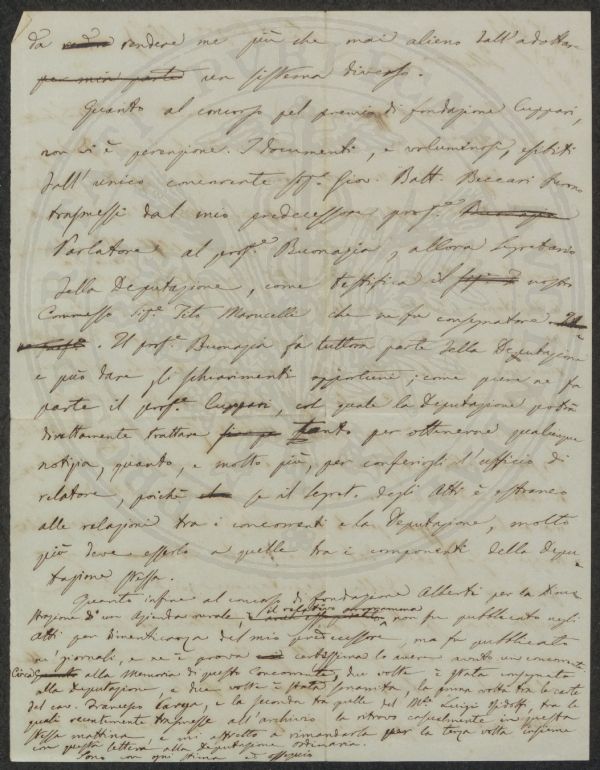 da rendere me più che mai alieno dall'adottare
per mia parte un sistema diverso.
Quanto al concorso pel premio di fondazione Cuppari,
non vi è perenzione. I documenti, e voluminosi, esibiti
dall'unico concorrente Sig.r Giov. Batt. Beccari furono
trasmessi dal mio predecessore prof.r Buonagia
Parlatore al prof.r Buonagia, allora Segretario
della Deputazione, come testifica il nostro
Commesso Sig.r Tito Marucelli che ne fu consegnatore.
Il prof.r Buonagia fa tuttora parte della Deputazione
e può dare gli schiarimenti opportuni; come pure ne fa
parte il prof.r Cuppari, col quale la Deputazione potrà
direttamente trattare tanto per ottenerne qualunque
notizia, quanto, e molto più, per conferirgli l'ufficio di
relatore, poichè se il Segret. degli Atti è estraneo
alle relazioni tra i concorrenti e la Deputazione, molto
più deve esserlo a quelle tra i componenti della Depu
tazione stessa.
Quanto infine al concorso di fondazione Alberti per la Dimo
strazione d'un Azienda rurale il relativo programma non fu pubblicato negli
Atti per dimenticanza del mio predecessore, ma fu pubblicato
ne' giornali, e ne è prova certissima lo avere avuto un concorrente
Circa alla Memoria di questo Concorrente, due volte è stata consegnata
alla Deputazione, e due volte è stata smarrita, la prima volta tra le carte
del cav. Francesco Carega, e la seconda tra quelle del M.se Luigi Ridolfi, tra le
quali recentemente trasmesse all'archivio la ritrovo casualmente in questa
stessa mattina, e mi affretto a rimandarla per la terza volta insieme
con questa lettera alla Deputazione ordinaria.
Sono con ogni stima ed ossequio